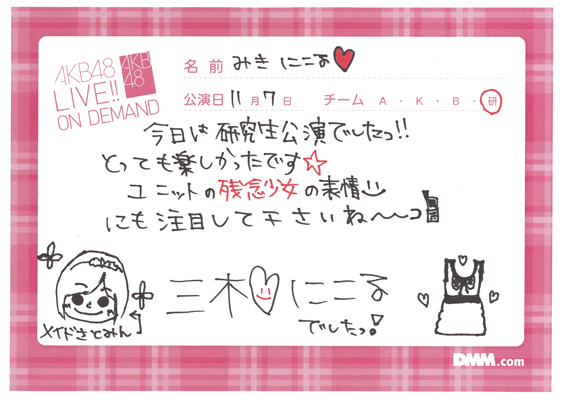 AKB48
LIVE!!
ON DEMAND
AKB
48
名前 みき にこる♥
公演日 11月7日 チーム A・K・B・研
今日は研究生公演でしたっ!!
とっても楽しかったです☆
ユニットの残念少女の表情
にも注目して下さいね〜〜
三木♡にこる
でしたっ!
メイドさとみん
DMM.com